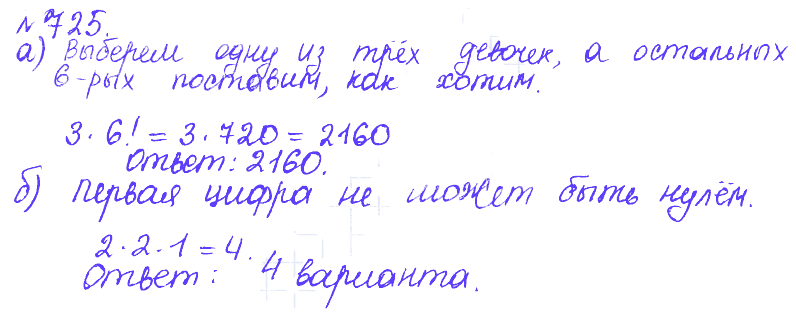 № 725.
а) Выберем одну из трёх девочек, а остальных
6-рых поставим, как хотим.
3 · 6! = 3 · 720 = 2160
Ответ: 2160.
б) Первая цифра не может быть нулём.
2 · 2 · 1 = 4.
Ответ: 4 варианта.